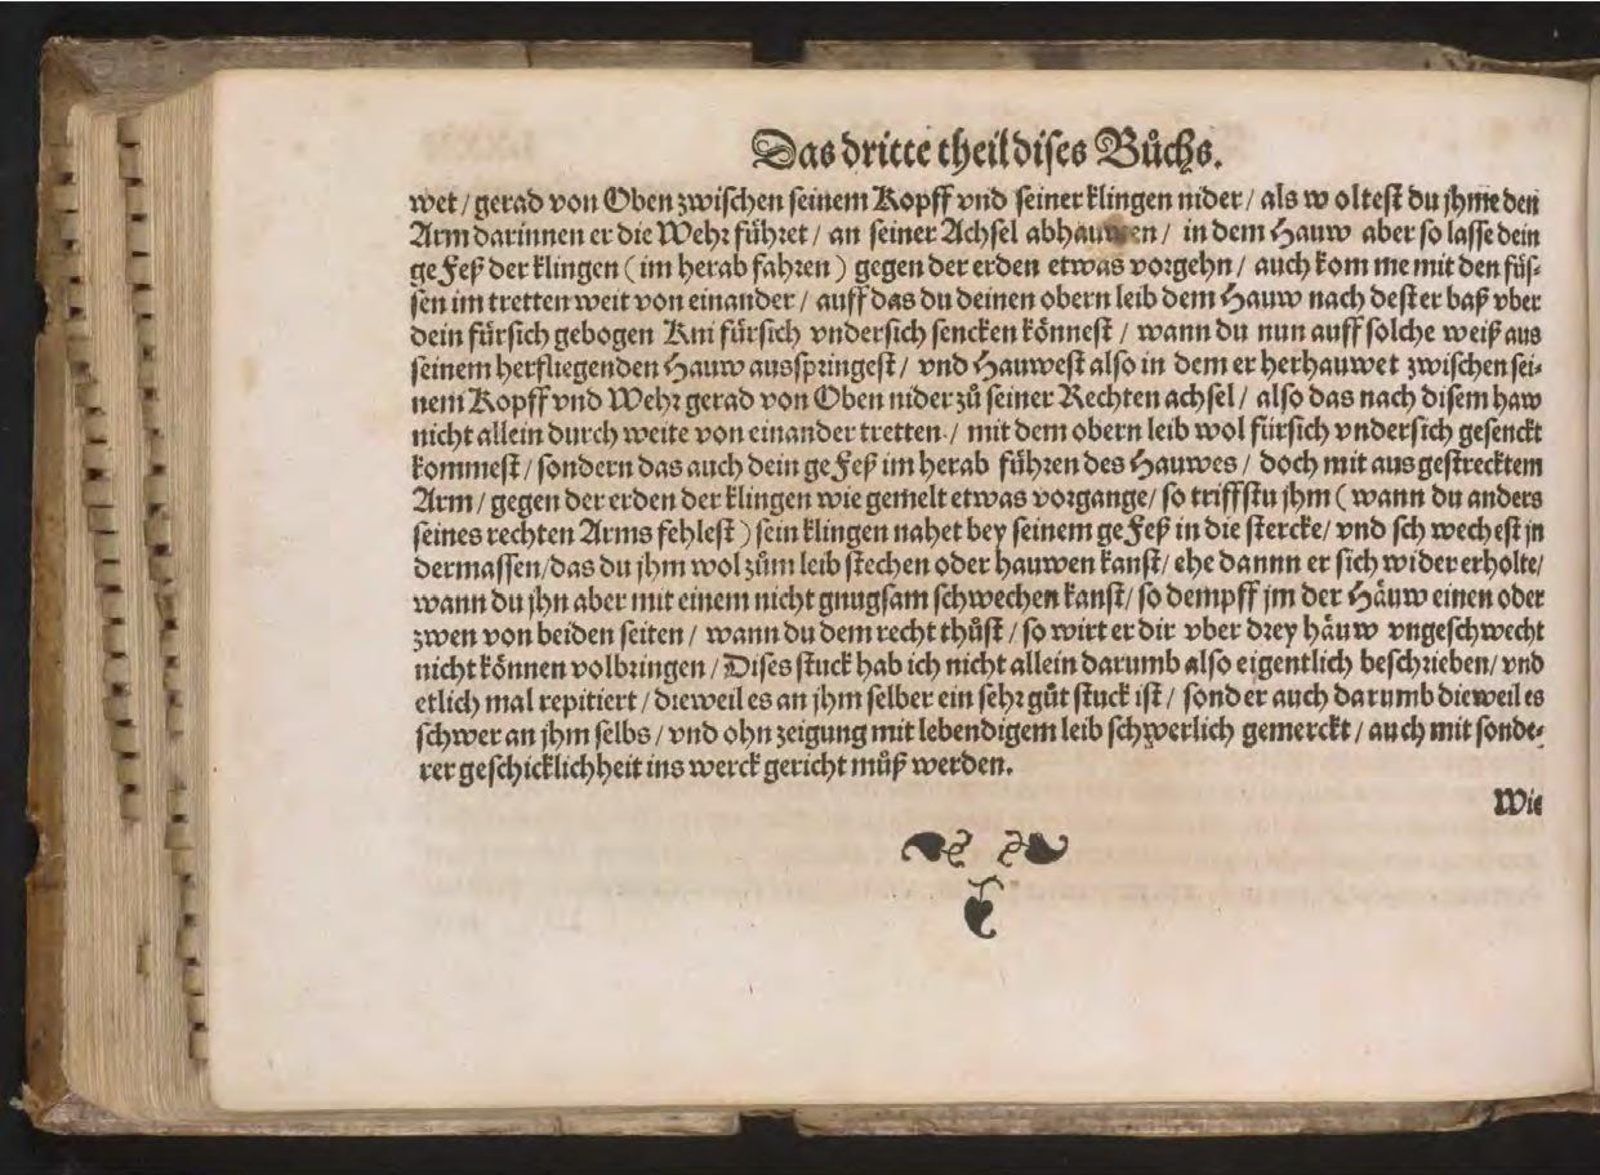 Das dritte theil dises Bůchs.
wet / gerad von Oben zwischen seinem Kopff vnd seiner klingen nider / als woltest du jhme den
Arm darinnen er die Wehr führet / an seiner Achsel abhauwen / in dem Hauw aber so lasse dein
gefeß der klingen (im herab fahren) gegen der erden etwas vorgehn / auch komme mit den füs-
sen im tretten weit von einander / auff das du deinen obern leib dem Hauw nach dester baß vber
dein fürsich gebogen Kni fürsich vndersich sencken könnest / wann du nun auff solche weiß aus
seinem herfliegenden Hauw ausspringest / vnd Hauwest also in dem er herhauwet zwischen sei-
nem Kopff vnd Wehr gerad von Oben nider zů seiner Rechten achsel / also das nach disem haw
nicht allein durch weite von einander tretten / mit dem obern leib wol fürsich vndersich gesenckt
kommest / sondern das auch dein gefeß im herab führen des Hauwes / doch mit ausgestrecktem
Arm / gegen der erden der klingen wie gemelt etwas vorgange / so triffstu jhm (wann du anders
seines rechten Arms fehlest) sein klingen nahet bey seinem gefeß in die stercke / vnd schwechest jn
dermassen / das du jhm wol zům leib stechen oder hauwen kanst / ehe dannn er sich wider erholte /
wann du jhn aber mit einem nicht gnugsam schwechen kanst / so dempff jm der Häuw einen oder
zwen von beiden seiten / wann du dem recht thůst / so wirt er dir vber drey häuw vngeschwecht
nicht können volbringen / Dises stuck hab ich nicht allein darumb also eigentlich beschrieben / vnd
etlich mal repitiert / dieweil es an jhm selber ein sehr gůt stuck ist / sonder auch darumb dieweil es
schwer an jhm selbs / vnd ohn zeigung mit lebendigem leib schwerlich gemerckt / auch mit sonde-
rer geschicklichheit ins werck gericht můß werden.
Wie